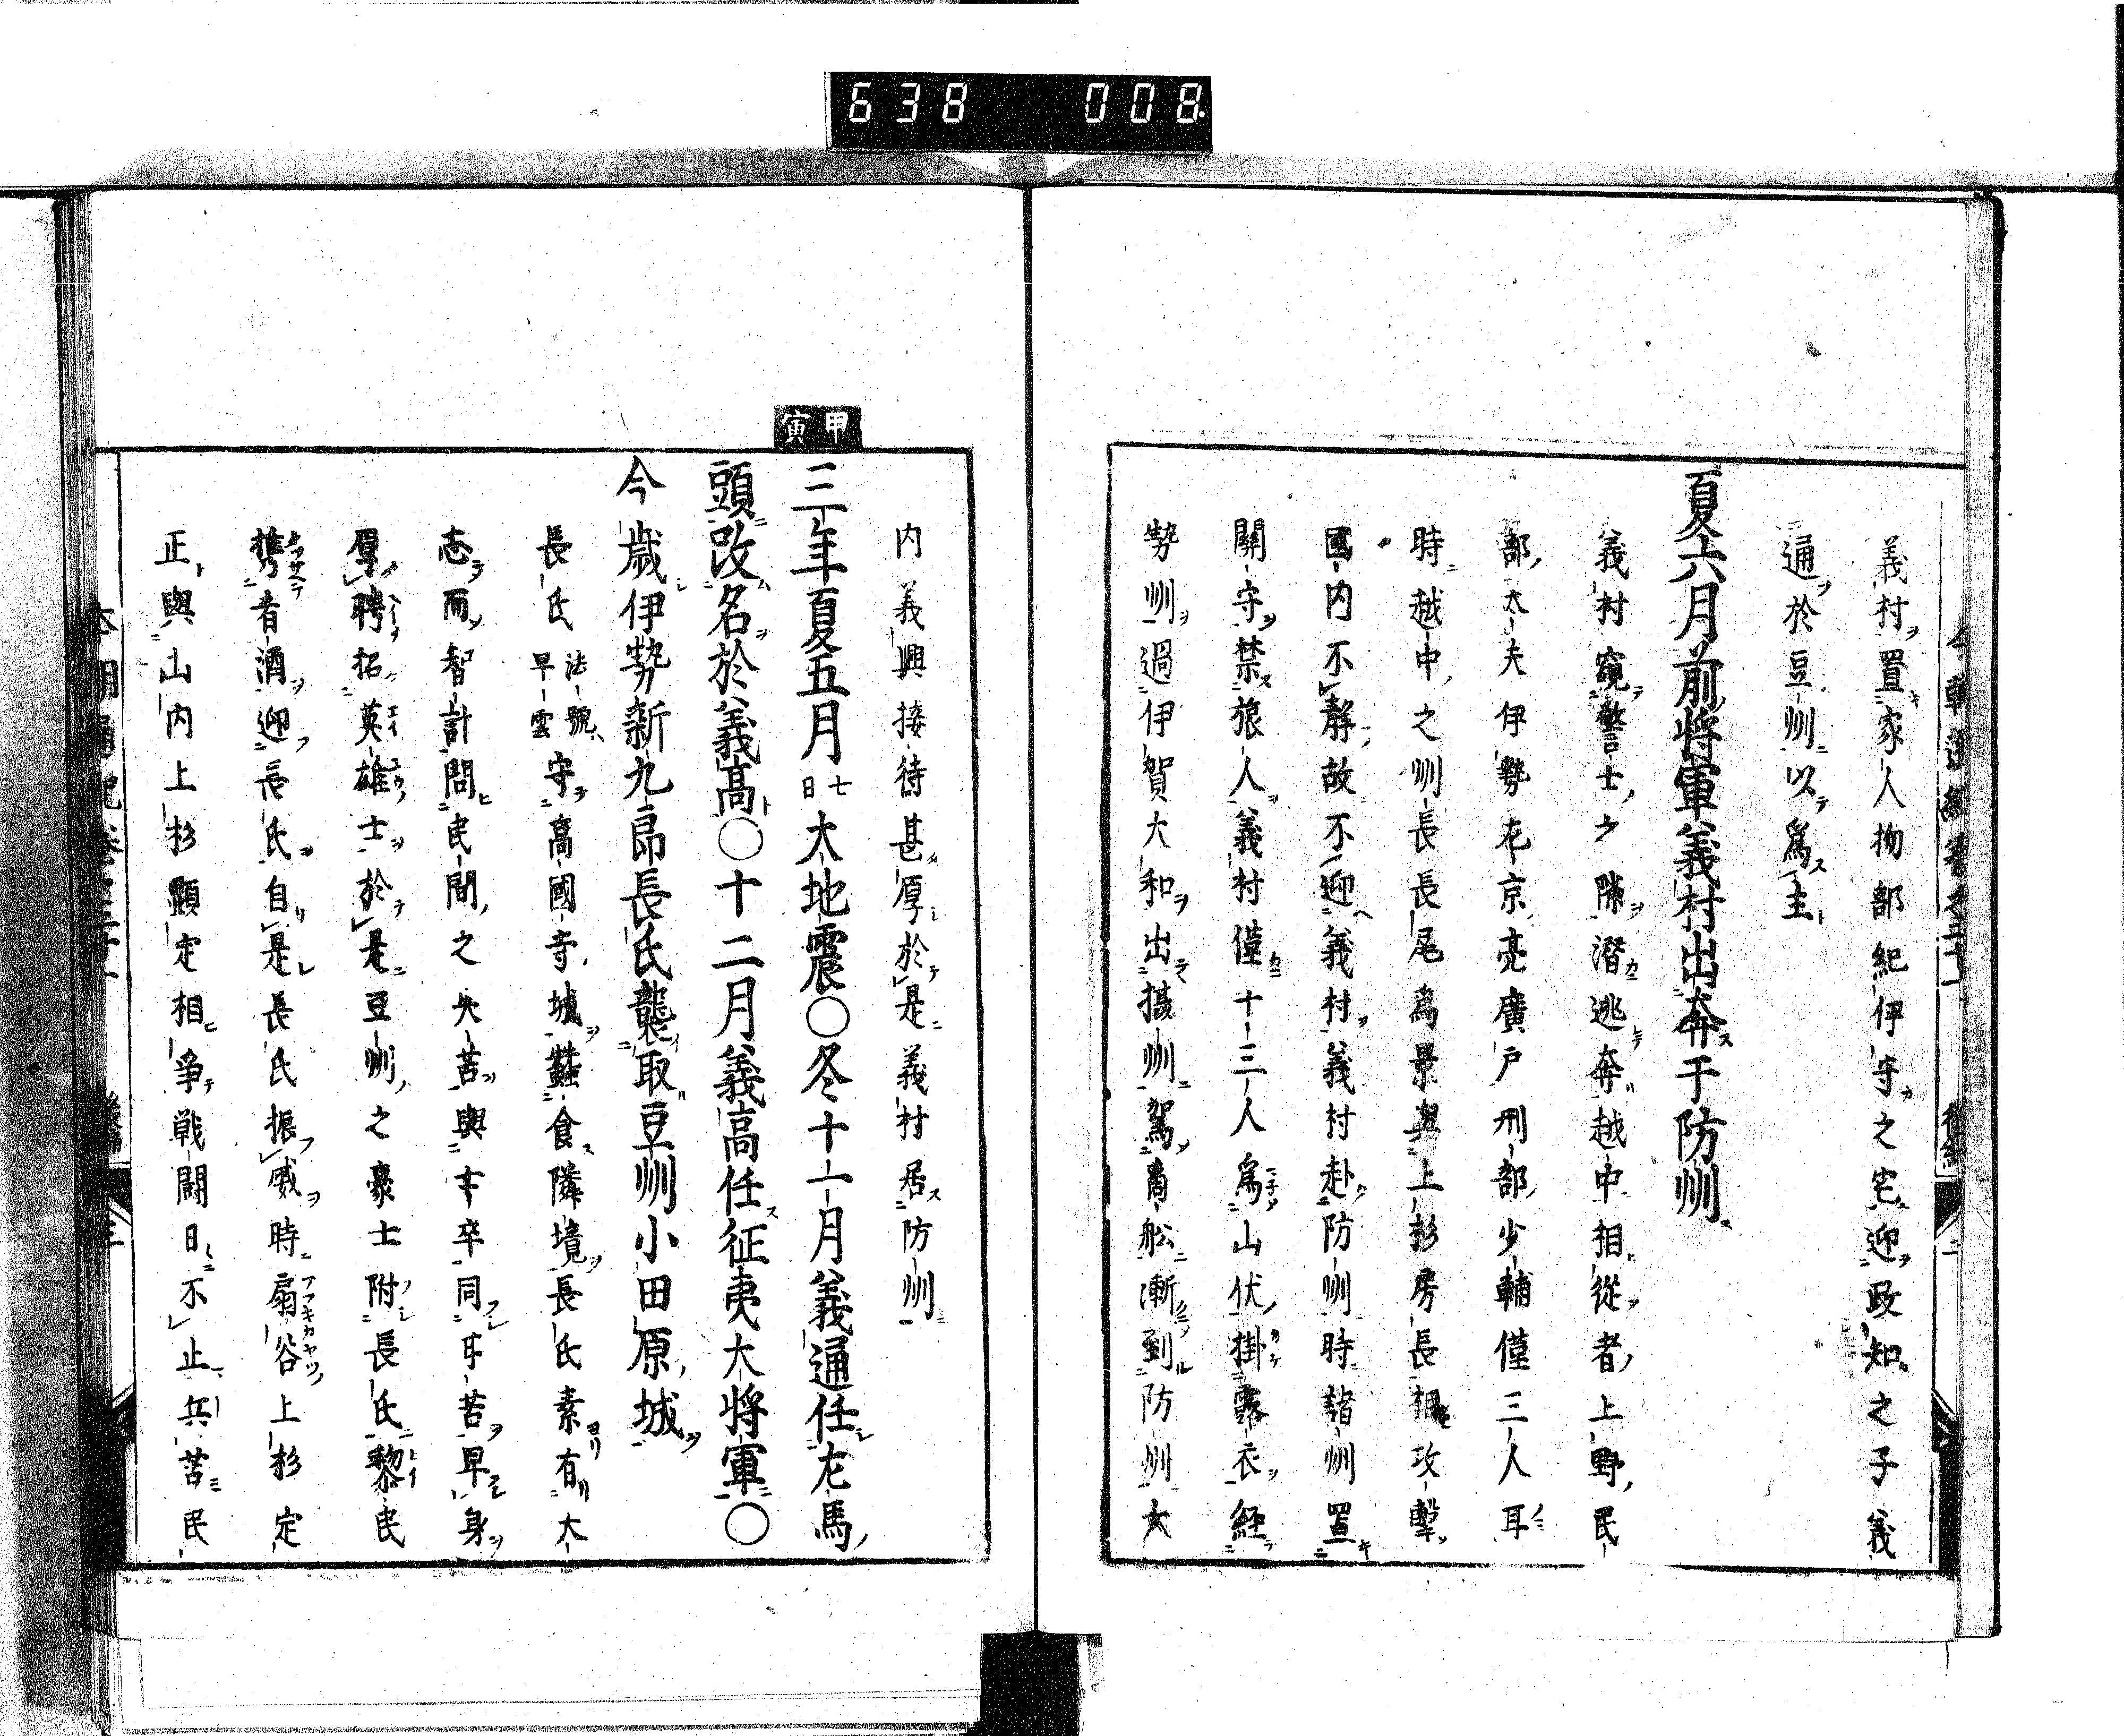 638 008
義村置家人拘部紀伊守之宅迎政知之子義
通於豆州以爲主
夏六月前將軍義村出奔于防州
義村窺警士之隙潛逃奔越中相從者上野民
部太夫伊勢左京亮廣戸刑部少輔僅三人耳
時越中之州長長尾爲景與上杉房長相攻擊
國内不靜故不迎義村義村赴防州時諸州置
關守禁旅人義村僅十三人爲山伏掛露衣經
勢州過伊賀大和出攝州駕商舩漸到防州大
内義興接待甚厚於是義村居防州
甲寅
三年夏五月七日大地震〇冬十一月義通任左馬
頭改名於義高〇十二月義高任征夷大將軍〇
今歳伊勢新九郎長氏襲取豆州小田原城
長氏法號早雲守高國寺城蠶食隣境長氏素有大
志而智計問民間之失苦與士卒同耳苦早身
厚聘招英雄士於是豆州之豪士附長氏黎民
携肴酒迎長氏自是長氏振威時扇谷上杉定
正與山内上杉顯定相爭戰鬪日不止兵苦民